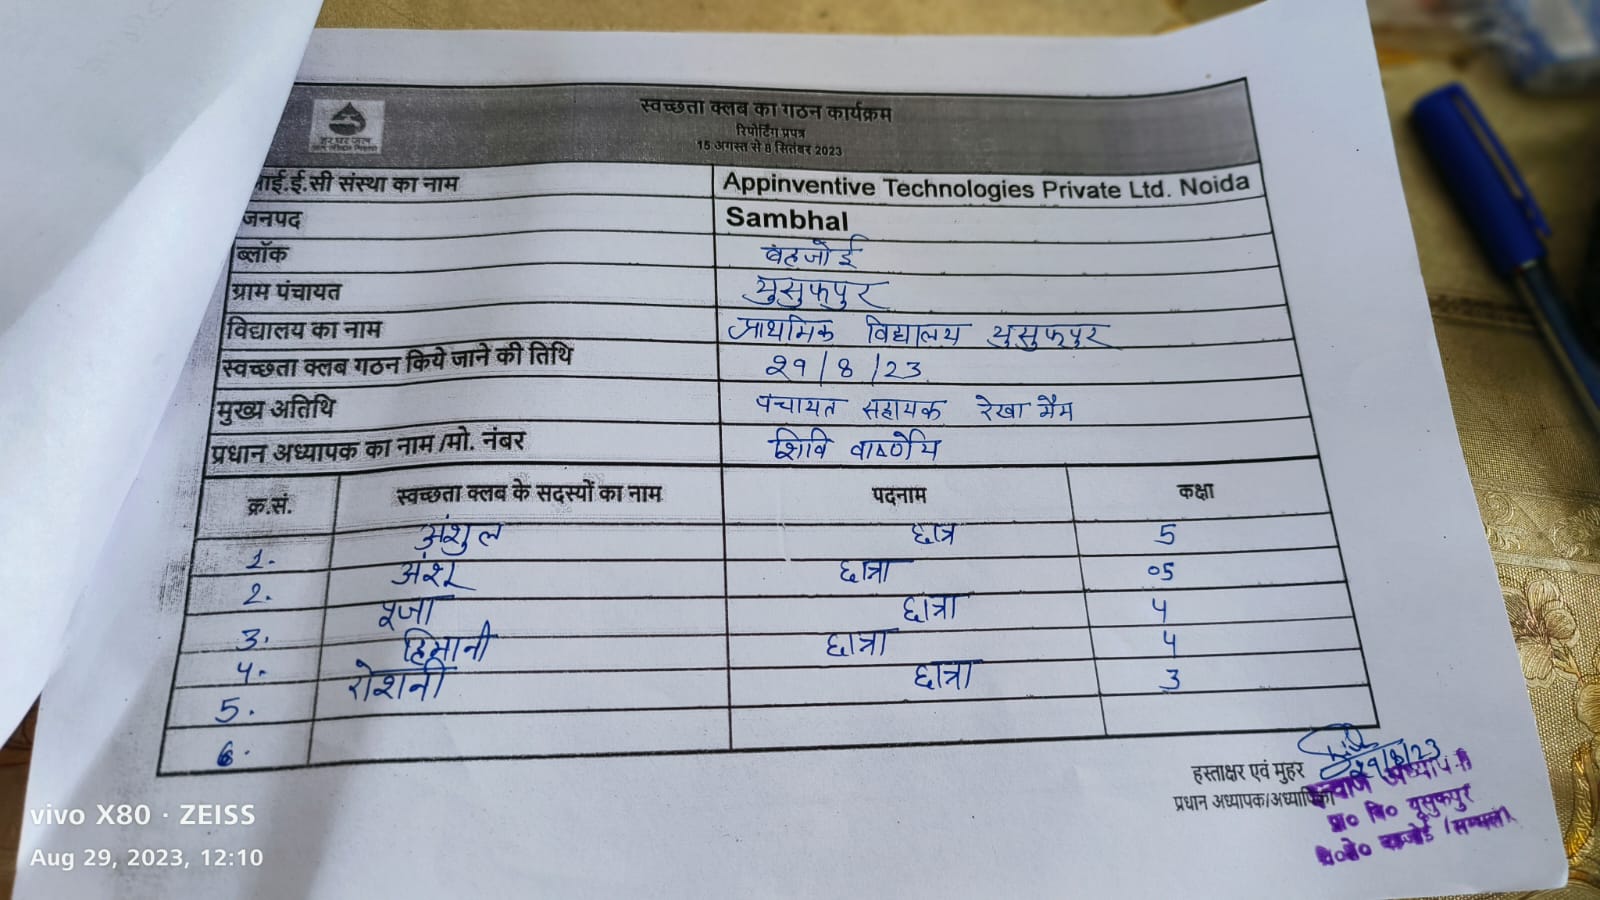 स्वच्छता क्लब का गठन कार्यक्रम
रिपोर्टिंग प्रपत्र
15 अगस्त से 8 सितंबर 2023
हर घर जल
आई.ई.सी संस्था का नाम Appinventive Technologies Private Ltd. Noida
जनपद Sambhal
ब्लॉक बहजोई
ग्राम पंचायत युसुफपुर
विद्यालय का नाम प्राथमिक विद्यालय युसुफपुर
स्वच्छता क्लब गठन किये जाने की तिथि 29/8/23
मुख्य अतिथि पंचायत सहायक रेखा मैम
प्रधान अध्यापक का नाम /मो. नंबर शिवि वार्ष्णेय
क्र.सं. स्वच्छता क्लब के सदस्यों का नाम पदनाम कक्षा
1. अंशुल छात्र 5
2. अंश छात्रा 05
3. पूजा छात्रा 4
4. हिमानी छात्रा 4
5. रोशनी छात्रा 3
6.
हस्ताक्षर एवं मुहर 29/8/23
प्रधान अध्यापक/अध्यापिका
प्रा० वि० यूसुफपुर
वि०क्षे० बहजोई (सम्भल)
vivo X80 · ZEISS
Aug 29, 2023, 12:10